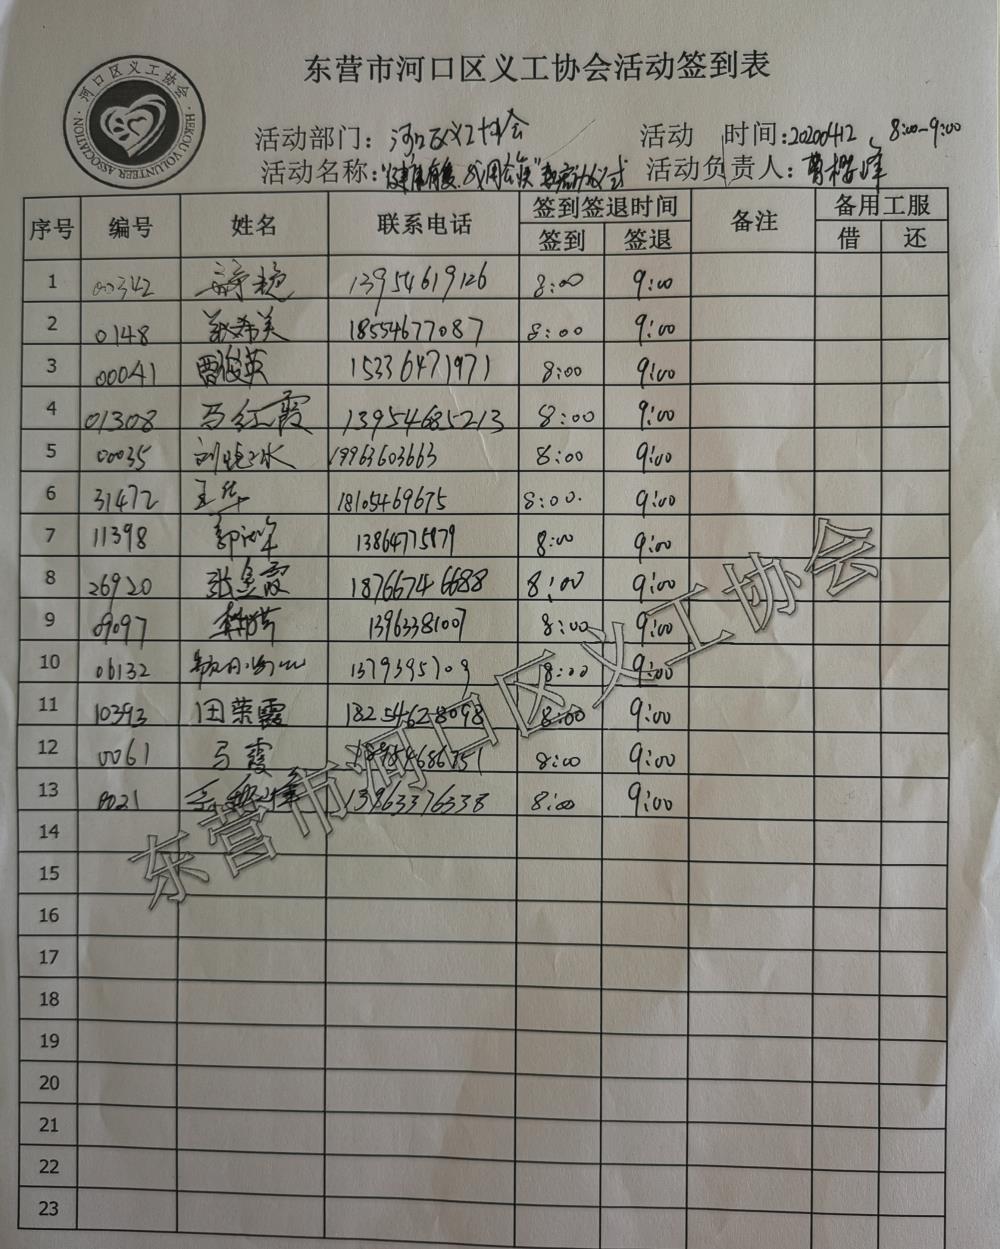 东营市河口区义工协会活动签到表
河口区义工协会
HEKOU VOLUNTEER ASSOCIATION
活动部门：河口区义工协会 活动 时间:20200412 8:00-9:00
活动名称: 活动负责人:
序号 编号 姓名 联系电话 签到签退时间 备注 备用工服
签到 签退 借 还
1 00342 13954619126 8:00 9:00
2 0148 18554677087 8:00 9:00
3 00041 曹俊英 15336471971 8:00 9:00
4 01308 马红霞 13954685213 8:00 9:00
5 00035 刘晓冰 19963603663 8:00 9:00
6 31472 王华 18105469675 8:00. 9:00
7 11398 13864775979 8:00 9:00
8 26920 18766746688 8:00 9:00
9 09097 13963381007 8:00 9:00
10 06132 8:00 9:00
11 10393 田荣霞 18254628098 8:00 9:00
12 0061 马霞 8:00 9:00
13 0021 13963376338 8:00 9:00
14
15
16
17
18
19
20
21
22
23
东营市河口区义工协会